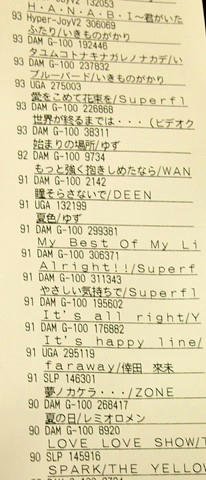 93 JoyV2 132053
H・A・N・A・B・I～君がいた
93 Hyper-JoyV2 306069
ふたり/いきものがかり
93 DAM G-100 192446
タユムコトナキナガレノナカデ/い
93 DAM G-100 237832
ブルーバード/いきものがかり
93 UGA 275003
愛をこめて花束を/Superfl
93 DAM G-100 226868
世界が終るまでは・・・(ビデオク
93 DAM G-100 38311
始まりの場所/ゆず
92 DAM G-100 9734
もっと強く抱きしめたなら/WAN
91 DAM G-100 2142
瞳そらさないで/DEEN
91 UGA 132199
夏色/ゆず
91 DAM G-100 299381
My Best Of My Li
91 DAM G-100 306371
Alright!!/Superf
91 DAM G-100 311343
やさしい気持ちで/Superfl
91 DAM G-100 195602
It's all right/Y
91 DAM G-100 176882
It's happy line/
91 UGA 295119
faraway/倖田 來未
91 SLP 146301
夢ノカケラ・・・/ZONE
90 DAM G-100 268417
夏の日/レミオロメン
90 DAM G-100 8920
LOVE LOVE SHOW/T
90 SLP 145916
SPARK/THE YELLOW
90 DAM G-100